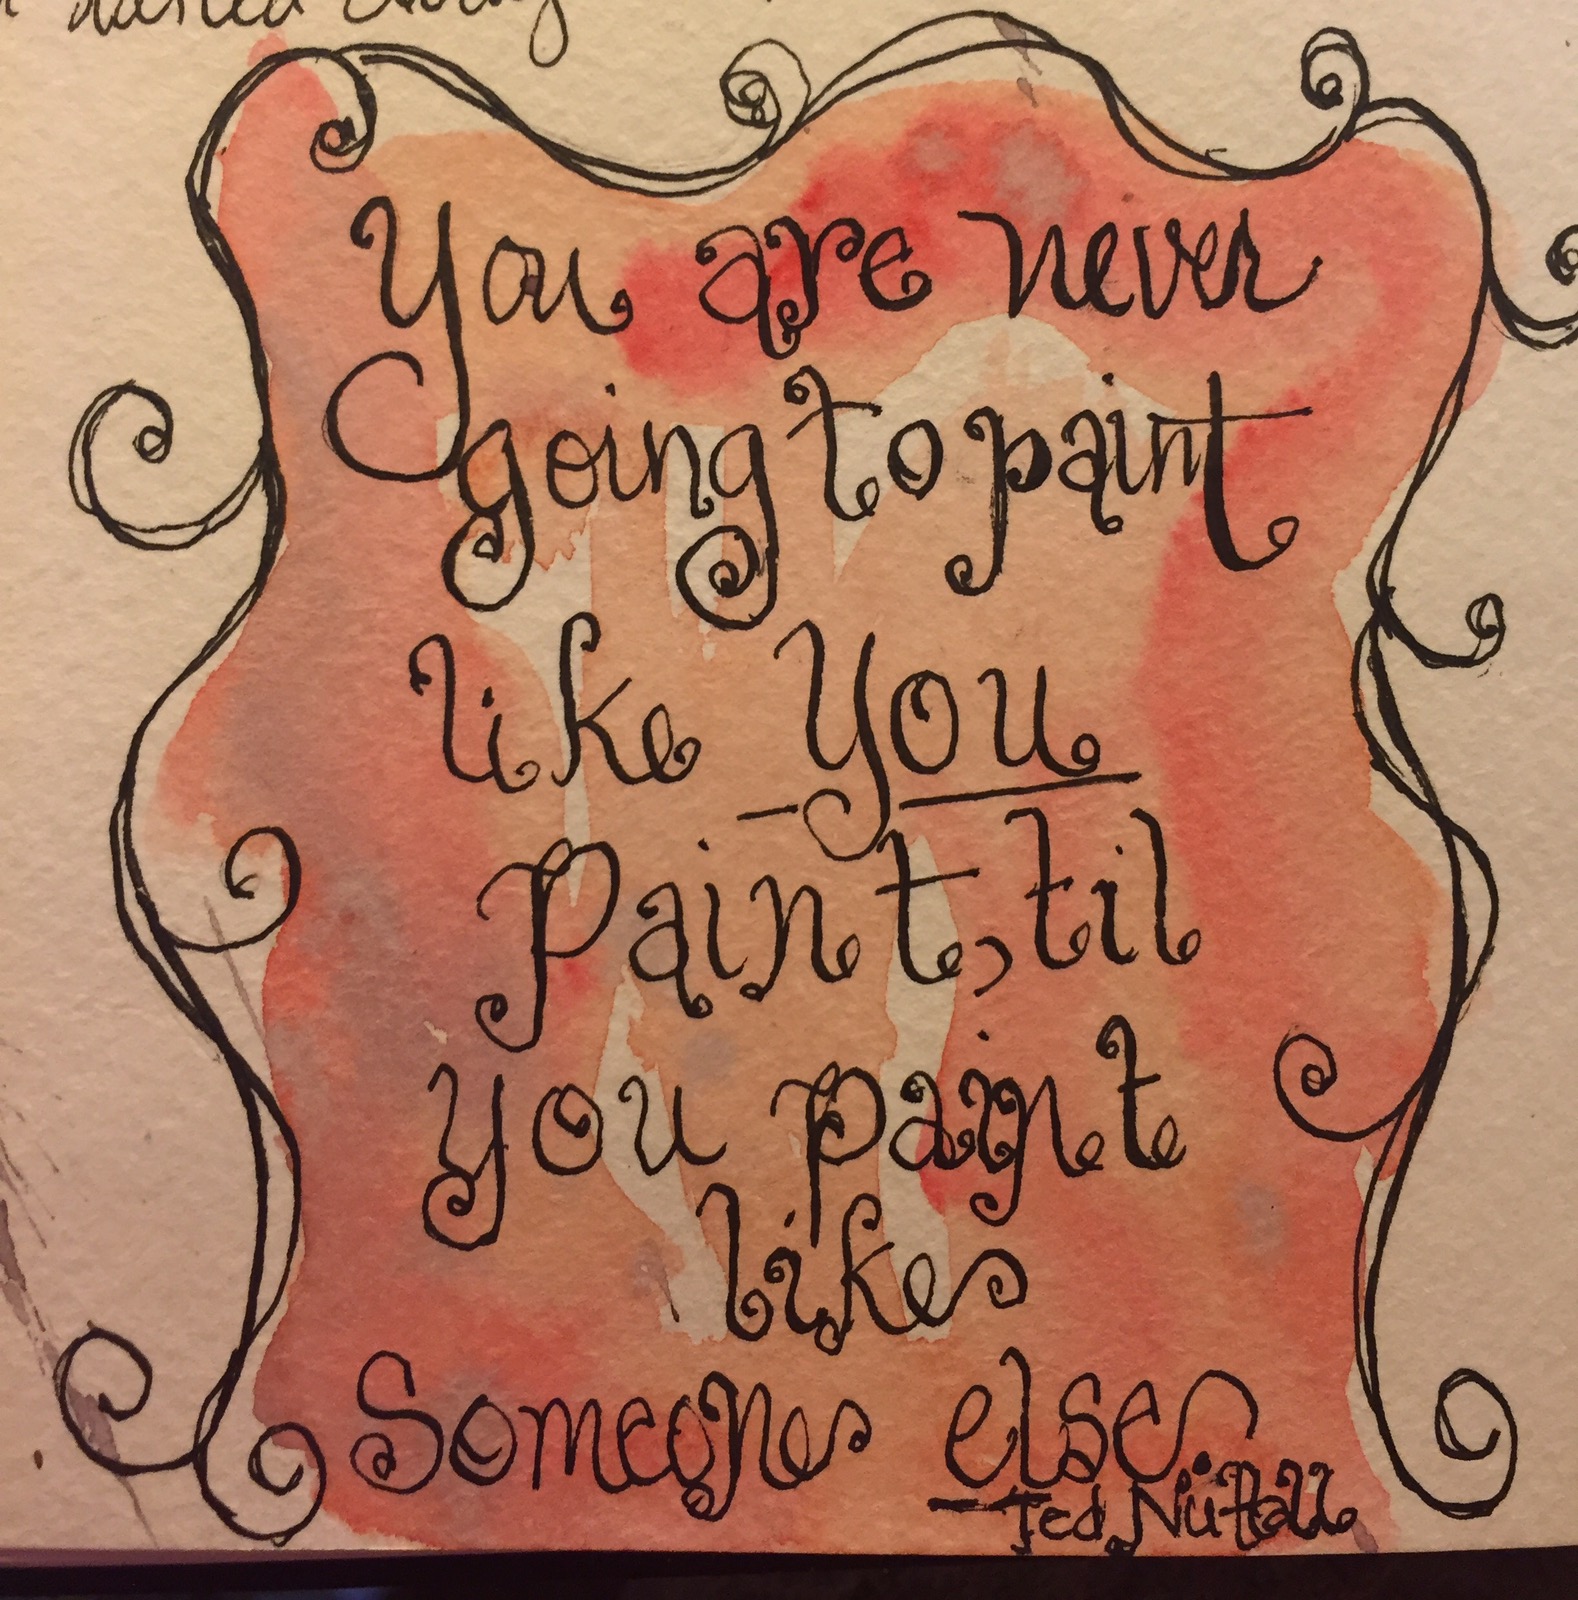 You are never
going to paint
like You
paint, til
you paint
like
Someone else.
- Ted Nuttall